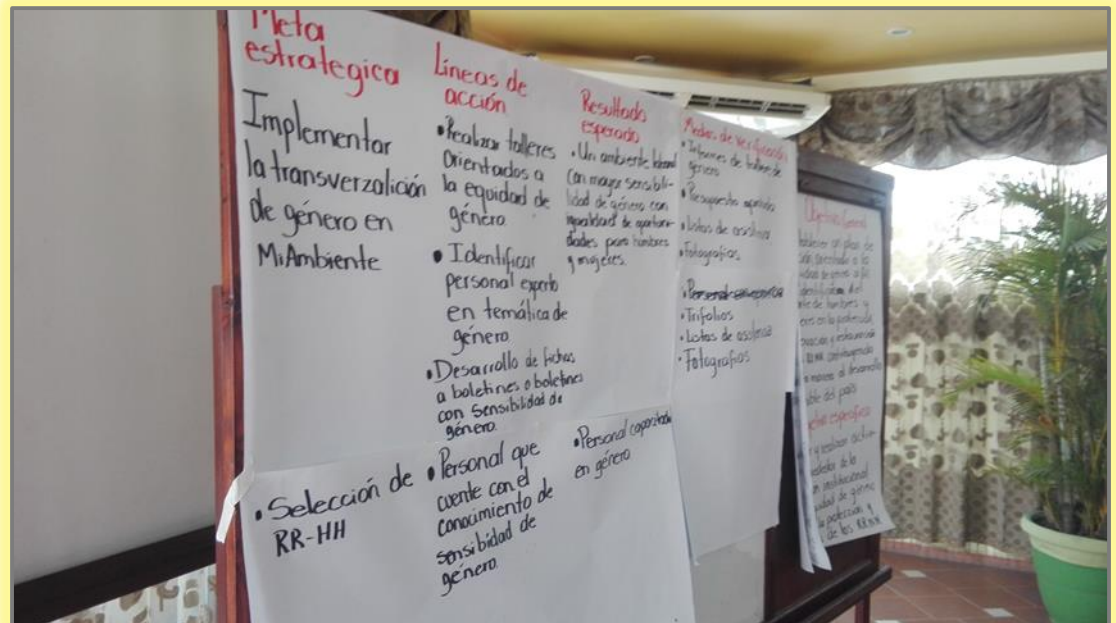 Meta
estrategica
Implementar
la transverzalición
de género en
MiAmbiente
• Selección de
RR-HH
Líneas de
acción
• Realizar talleres
Orientados a
la equidad de
género.
• Identificar
personal experto
en temática de
género
• Desarrollo de fichas
a boletines o boletines
con sensibilidad de
género.
• Personal que
cuente con el
conocimiento de
sensibidad de
género.
Resultado
esperado
• Un ambiente laboral
con mayor sensibili-
lidad de género con
igualdad de oportuni-
dades para hombres
y mujeres.
• Personal capacitado
en género
Medios de verificación
• Informes de talleres de
género
• Presupuesto
• Listas de asistencia
• Fotografías
• Trifolios
• Listas de asistencia
• Fotografías
Objetivo General
plan de
orientado a la
del
de hombres y
en la
contribuyendo
al desarrollo
del país
y realizar
de la
institucional
de género
protección y
de los RRNN